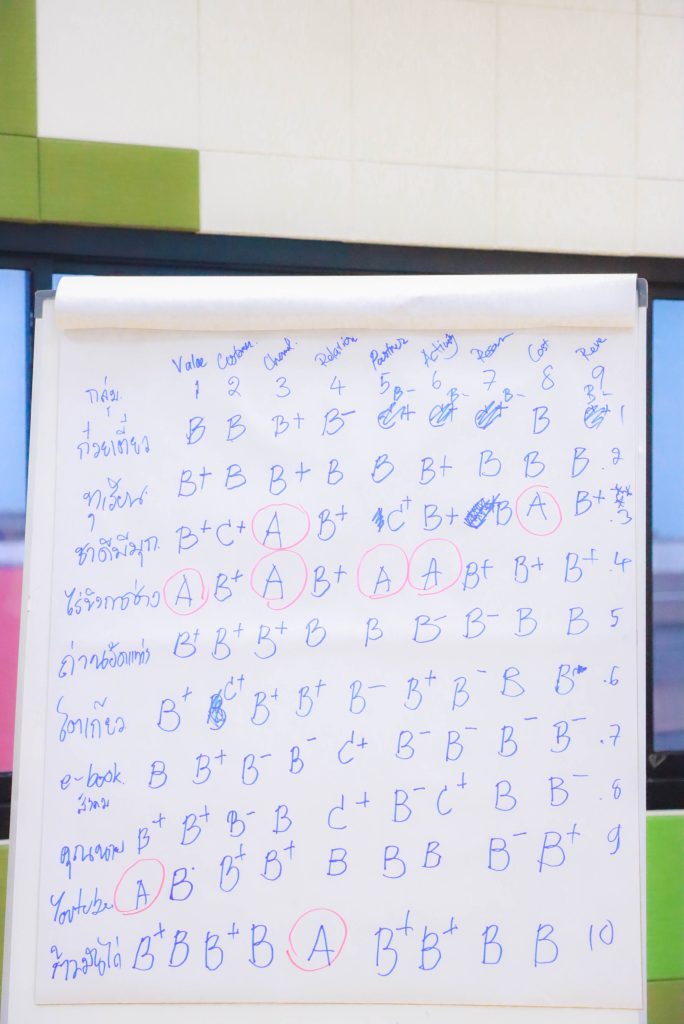 Value Custom. Channel Relation Partner Activity Resour Cost Reve
กลุ่ม. 1 2 3 4 5 6 7 8 9
ก๋วยเตี๋ยว B B B+ B- B- B- B- B B- 1
ทุเรียน B+ B B+ B B B+ B B B .2
ชาดีมีมุก. B+ C+ A B+ C+ B+ B A B+ .3
A B+ A B+ A A B+ B+ B+ .4
ถ่านอัดแท่ง B+ B+ B+ B B B- B- B B 5
โตเกียว B+ C+ B+ B+ B- B+ B- B B .6
e-book. B B+ B- B- C+ B- B- B- B- .7
สังคม
คุณนาย B+ B+ B- B C+ B- C+ B B- .8
Youtube A B B+ B+ B B B B- B+ 9
ข้าวมันไก่ B+ B B+ B A B+ B+ B B 10